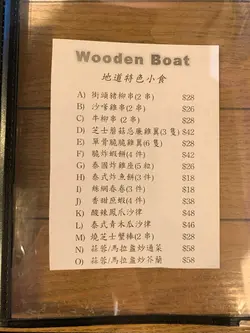 Wooden Boat
地道特色小食
A) 街頭豬柳串(2 串) $28
B) 沙嗲雞串(2串) $26
C) 牛柳串(2串) $28
D) 芝士蘑菇忌廉雞翼(3 隻) $42
E) 單骨脆脆雞翼(6隻) $28
F) 脆炸蝦餅(4 件) $42
G) 泰國炸雞座(5粒) $26
H) 泰式炸魚餅(3件) $38
I) 絲網春卷(3 件) $38
J) 香甜蔗蝦(4件) $38
K) 酸辣鳳爪沙律 $48
L) 泰式青木瓜沙律 $46
M) 燒芝士蟹棒(2串) $28
N) 蒜蓉/馬拉盞炒通菜 $58
O) 蒜蓉/馬拉盞炒芥蘭 $58